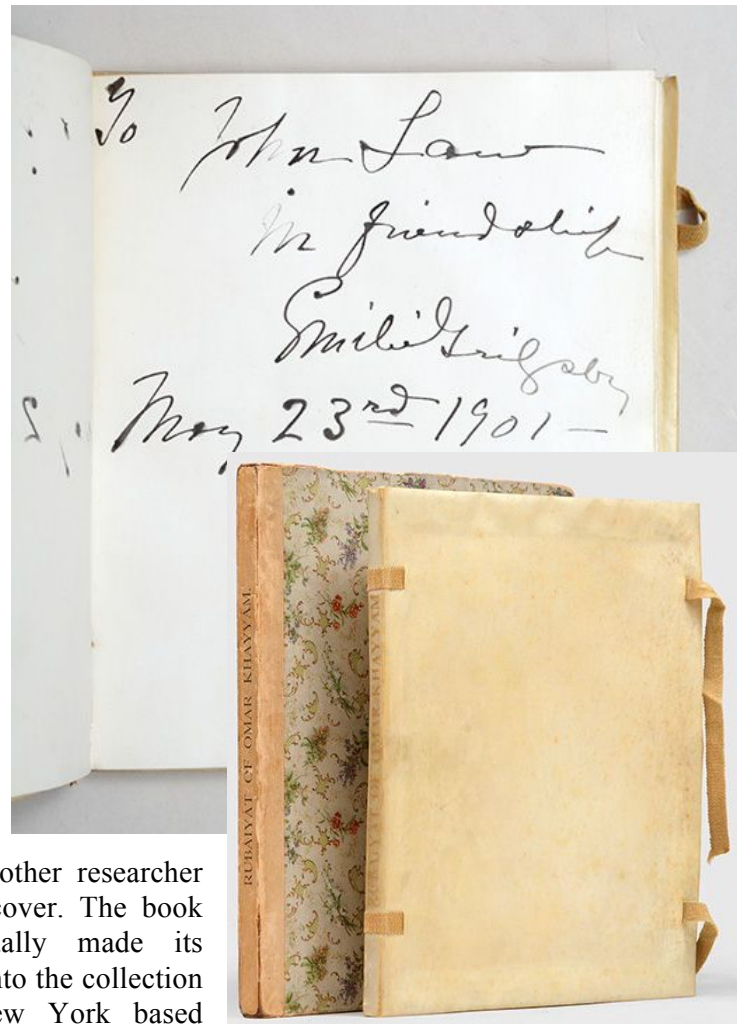 To John Law
in friendship
Emilie Grigsby
May 23rd 1901 —
RUBAIYAT OF OMAR KHAYYAM.
KHAYYAM
other researcher
cover. The book
ally made its
nto the collection
ew York based